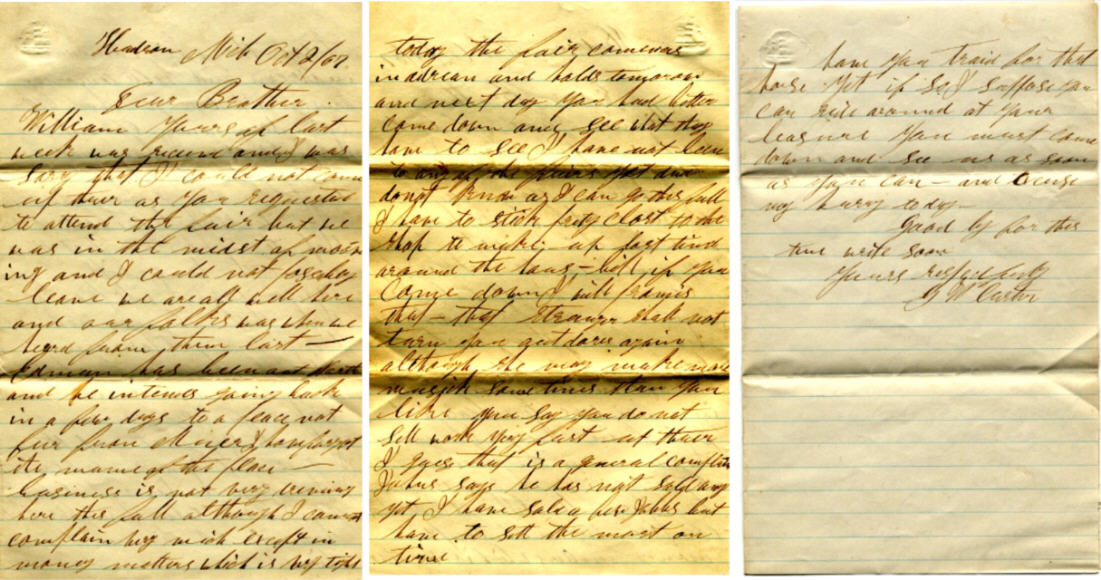 Hudson Mich Oct 2/67
Dear Brother
William Yours of last
week was receive and I was
sory that I could not come
up thair as you requested
to attend the fair but we
was in the midst of mov
ing and I could not possibly
leave we are all well here
and our folks was when we
heard from them last —
has been out
and he intends going back
in a few days to a place not
far from I have forgot
the name of the place —
business is not very driving
here this fall although I cannot
complain very much except in
money matters which is very tight
today the fair comences
in adrean and holds tomorrow
and next day You had better
come down and see what they
have to see I have not been
to any of the fairs yet and
dont know as I can go this fall
I have to stick prety close to the
shop to work up
around the — but if you
come down I will promis
that — that stranger shall not
turn you out dores again
although she may make more
musick sometimes than you
like you say you do not
sell work very fast up thair
I guess that is a general complaint
says he has not sold any
yet I have sold a few but
have to sell the most on
time
have you traid for that
horse yet if so I suppose you
can ride around at your
leasure You must come
down and see us as soon
as you can — and excuse
my hurry today
Good by for this
time write soon
Yours respectfully